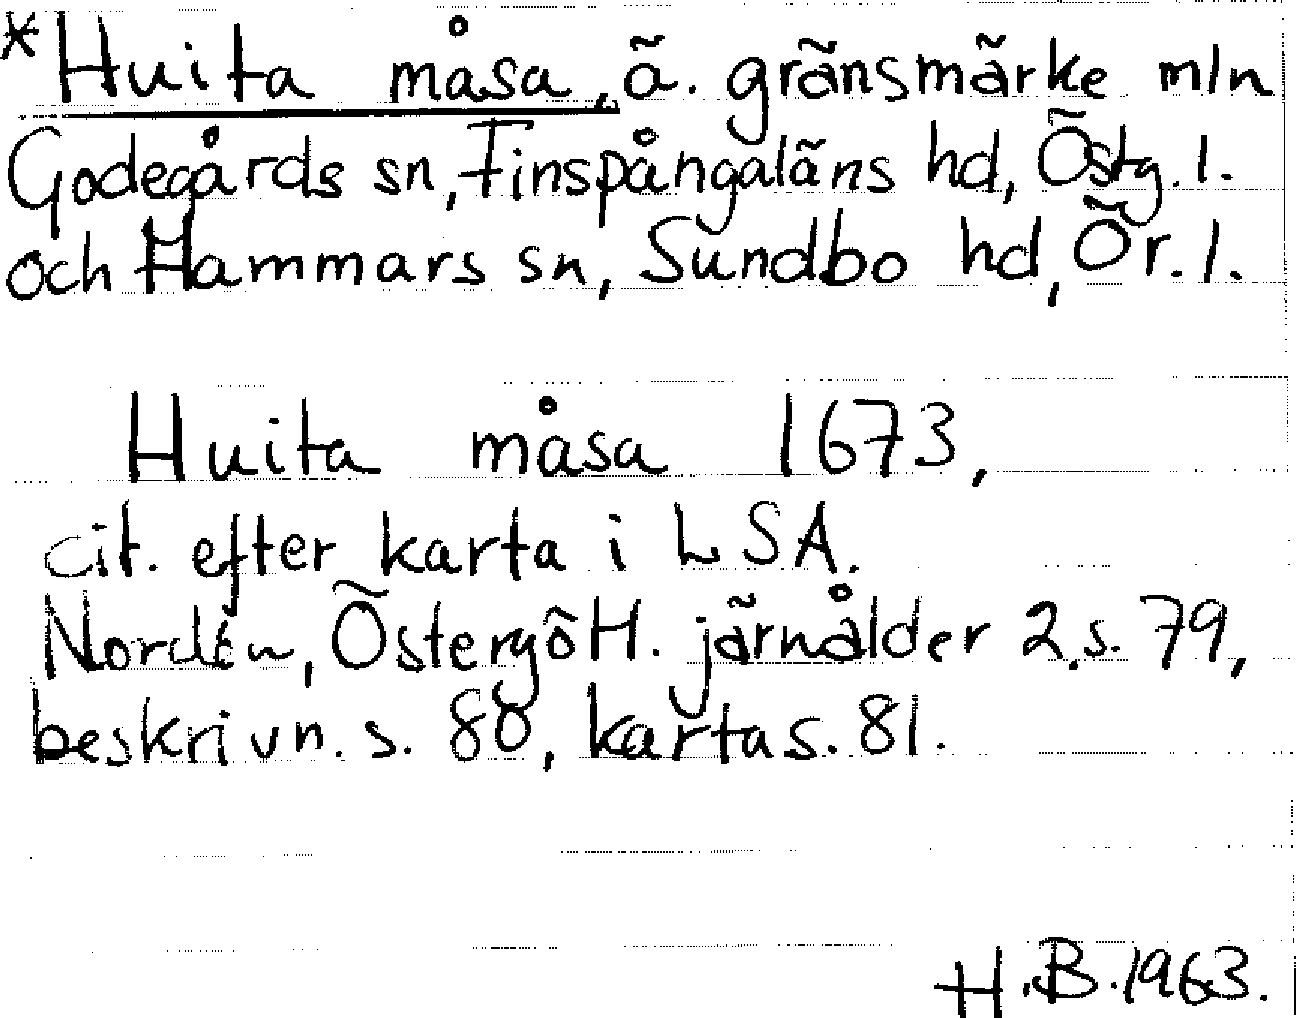 *Huita måsa, ä. gränsmärke mln
Godegårds sn, Finspångaläns hd, Östg. l.
och Hammars sn, Sundbo hd, Ör. l.
Huita måsa 1673,
cit. efter karta i LSA.
Nordén, Östergött. järnålder 2, s. 79,
beskrivn. s. 80, karta s. 81.
H.B. 1963.